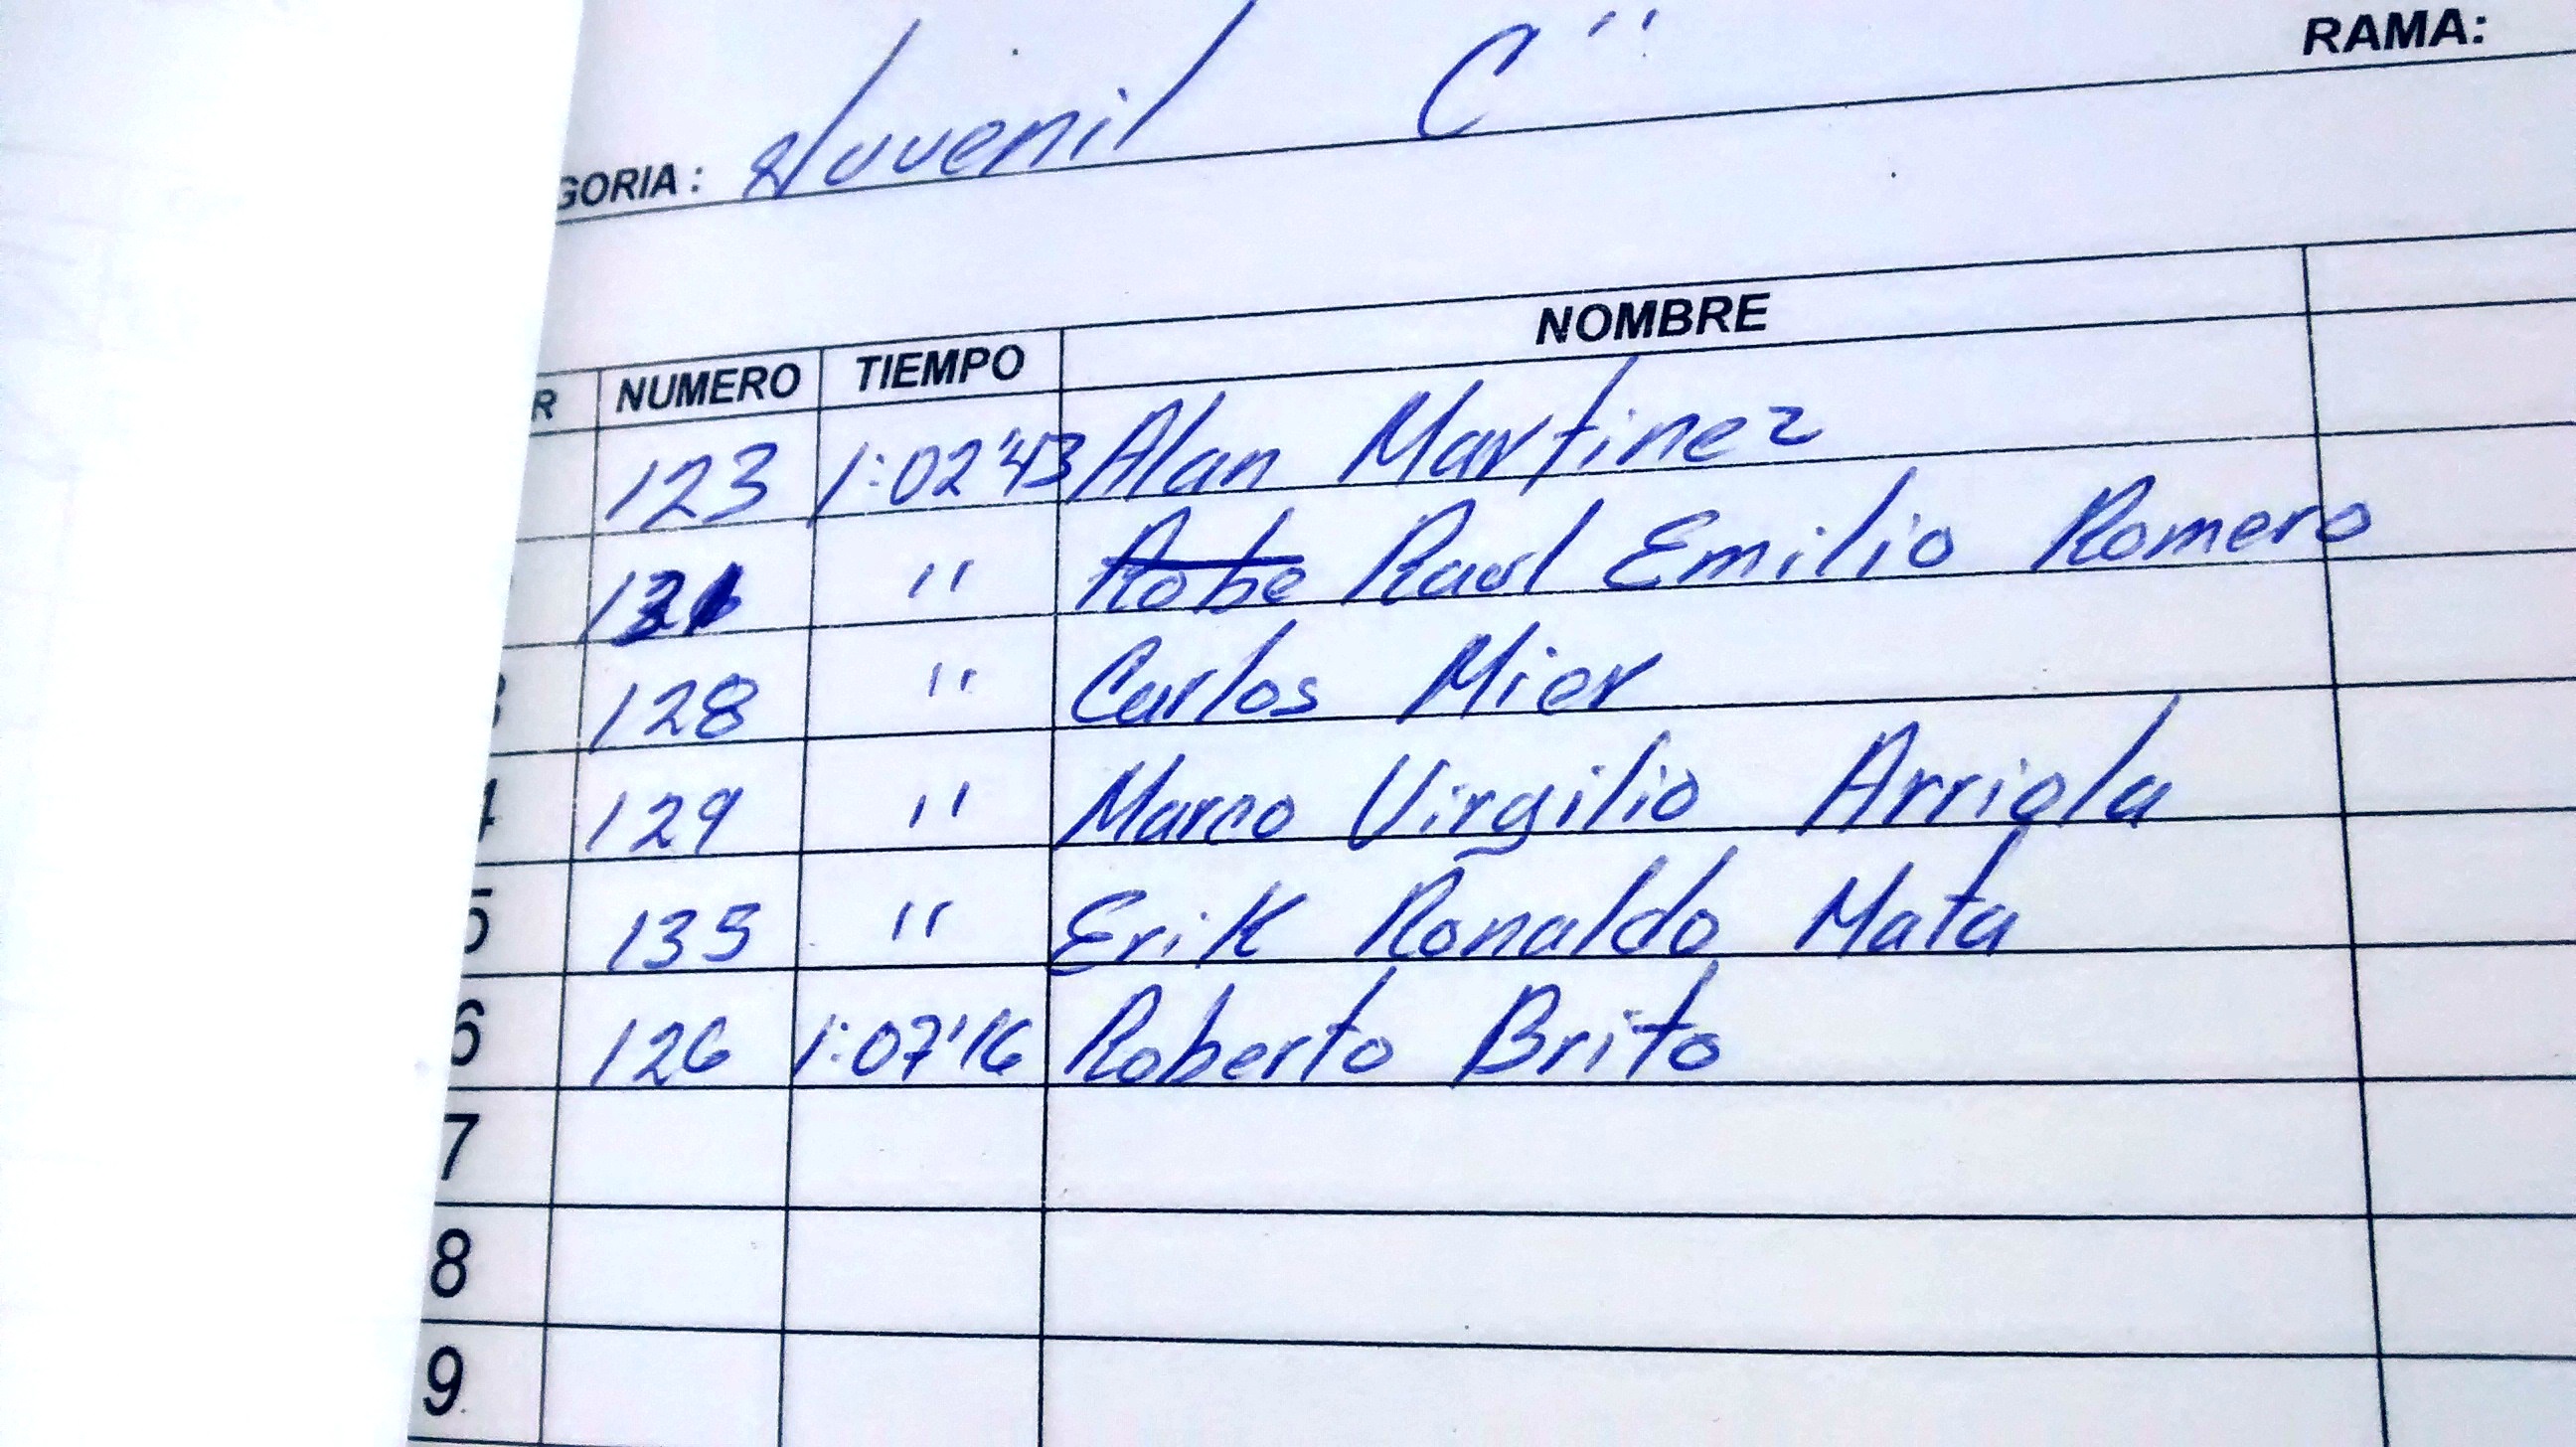 RAMA:
GORIA: Juvenil C"
R NUMERO TIEMPO NOMBRE
123 1:02'43 Alan Martinez
131 " Robe Raul Emilio Romero
128 " Carlos Mier
4 129 " Marco Virgilio Arriola
5 135 " Erik Ronaldo Mata
6 126 1:07'16 Roberto Brito
7
8
9